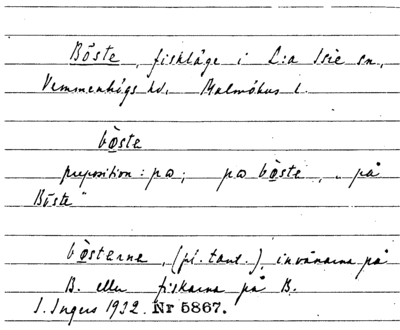 Böste, fiskläge i L:a Isie sn,
Vemmenhögs hd, Malmöhus l.
bø̀ste
preposition: pɷ; pɷ bø̀ste, „på
Böste"
bø̀sterne, (pl. tant.), invånarna på
B. eller fiskarna på B.
I. Ingers 1932. Nr 5867.